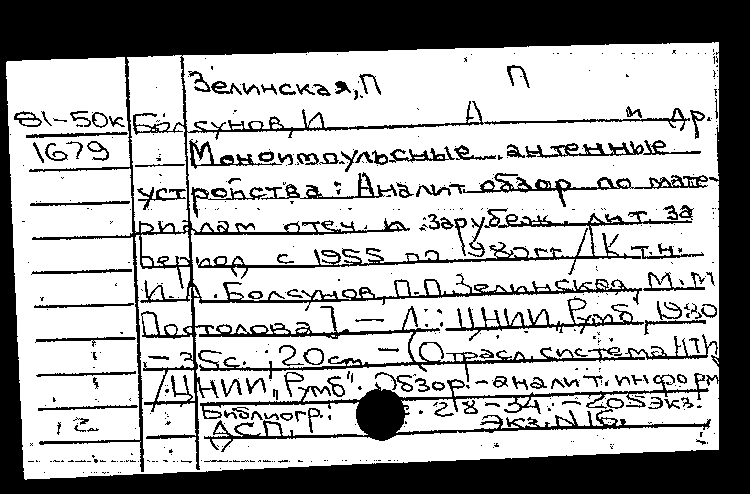 Зелинская, П П
81-50к Болсунов, И А и др.
1679 Моноимпульсные антенные
устройства: Аналит обзор по мате-
риалам отеч. и зарубеж. лит. за
период с 1955 по 1980 гг. / [К.т.н.
И.А. Болсунов, П.П. Зелинская, М.М
Постолова]. — Л.: ЦНИИ „Румб", 1980
– 35с.; 20см. – (Отрасл. система НТИ
/ ЦНИИ „Румб". Обзор.-аналит. информ
Библиогр.: с. 28-34. – 205экз.
12 ДСП, Экз. N 16.